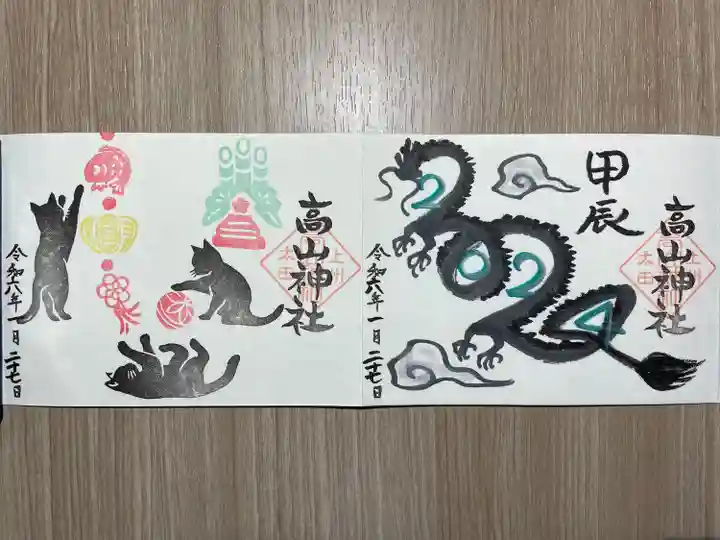 甲辰
高山神社
上州
太田
2024
令和六年一月二十七日
高山神社
上州
太田
令和六年一月二十七日